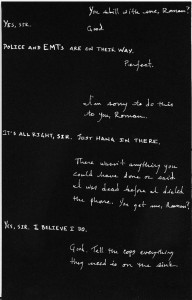 You still with me, Roman?
YES, SIR.
Good.
POLICE AND EMTS ARE ON THEIR WAY.
Perfect.
I'm sorry to do this
to you, Roman.
IT'S ALL RIGHT, SIR. JUST HANG IN THERE.
There wasn't anything you
could have done or said.
I was dead before I dialed
the phone. You get me, Roman?
YES, SIR. I BELIEVE I DO.
Good. Tell the cops everything
they need is on the sink.